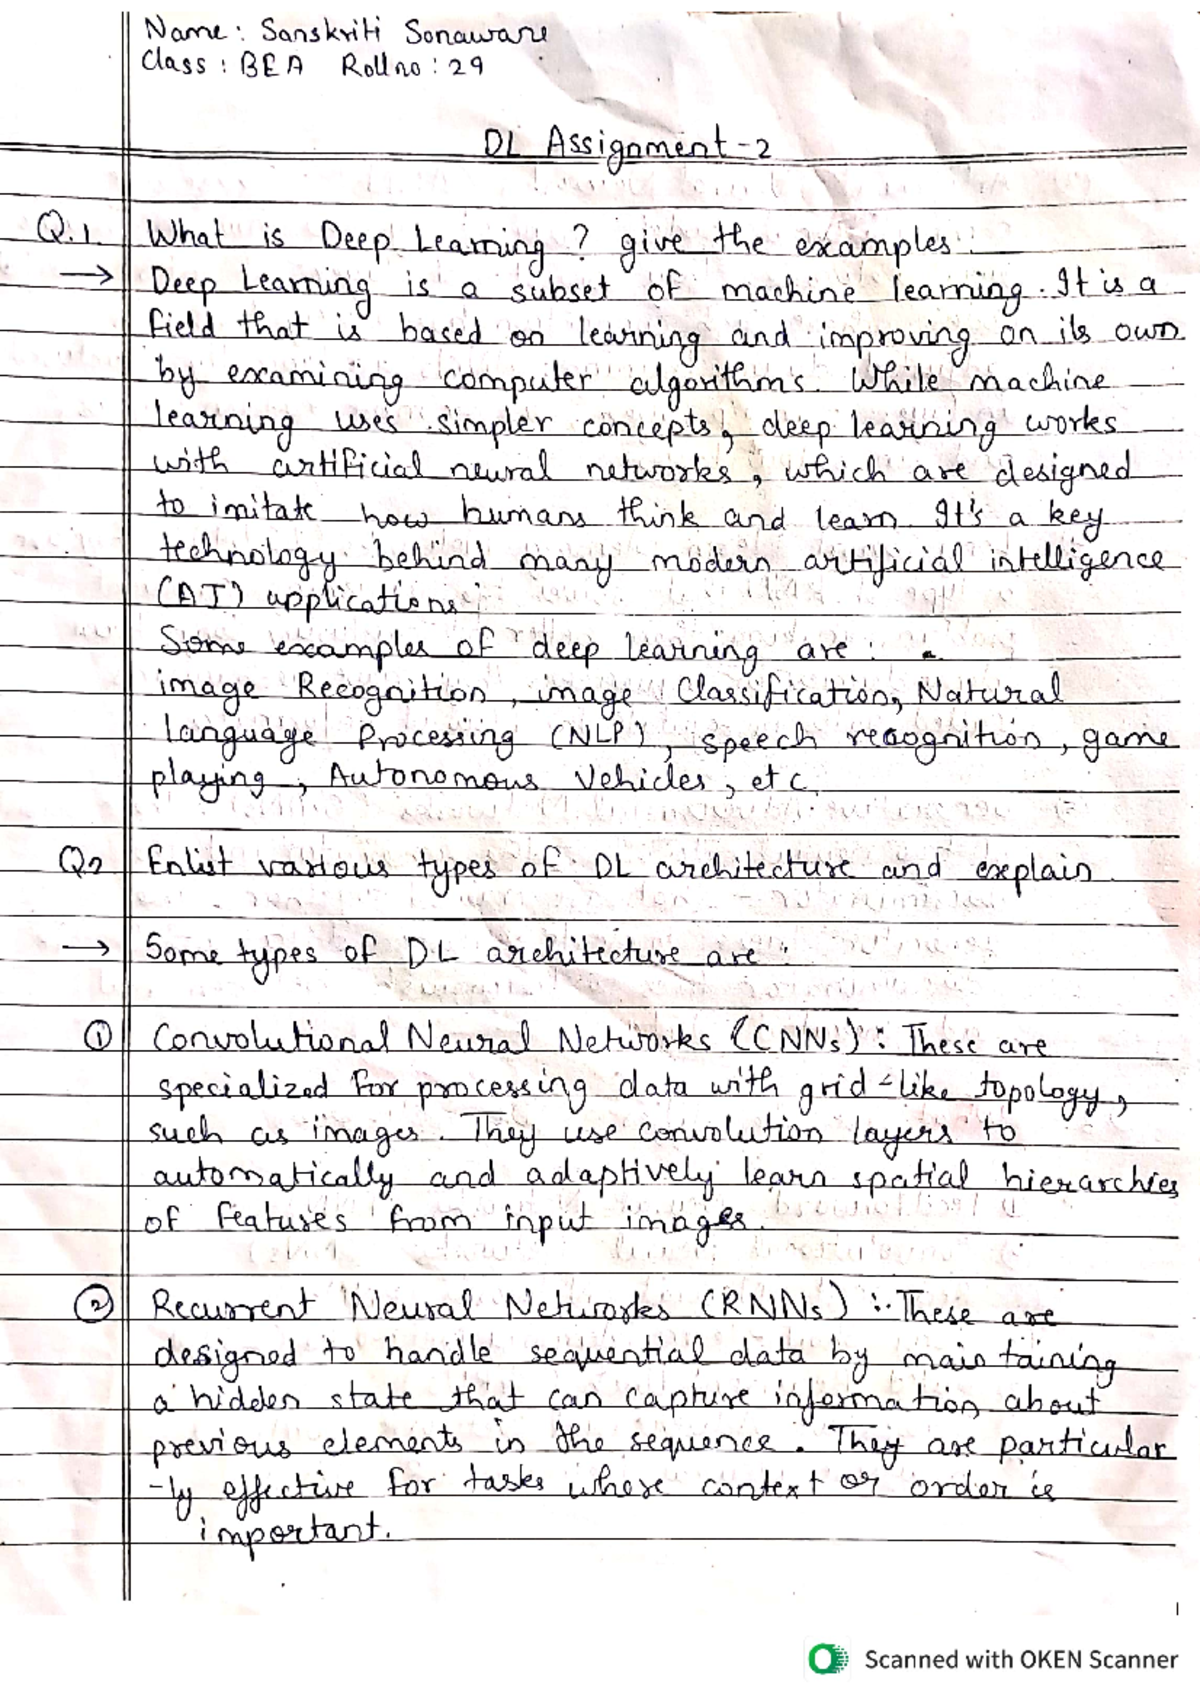 Name: Sanskriti Sonaware
Class: BEA Roll no: 29
DL Assignment-2
Q.1. What is Deep Learning? give the examples.
→ Deep Learning is a subset of machine learning. It is a
field that is based on learning and improving on its own
by examining computer algorithms. While machine
learning uses simpler concepts, deep learning works
with artificial neural networks, which are designed
to imitate how humans think and learn. It's a key
technology behind many modern artificial intelligence
(AI) applications.
Some examples of deep learning are:
image Recognition, image Classification, Natural
language Processing (NLP), speech recognition, game
playing, Autonomous Vehicles, etc.
Q2 Enlist various types of DL architecture and explain.
→ Some types of DL architecture are:
① Convolutional Neural Networks (CNNs): These are
specialized for processing data with grid-like topology,
such as images. They use convolution layers to
automatically and adaptively learn spatial hierarchies
of features from input images.
② Recurrent Neural Networks (RNNs): These are
designed to handle sequential data by maintaining
a hidden state that can capture information about
previous elements in the sequence. They are particular
-ly effective for tasks where context or order is
important.
1
Scanned with OKEN Scanner